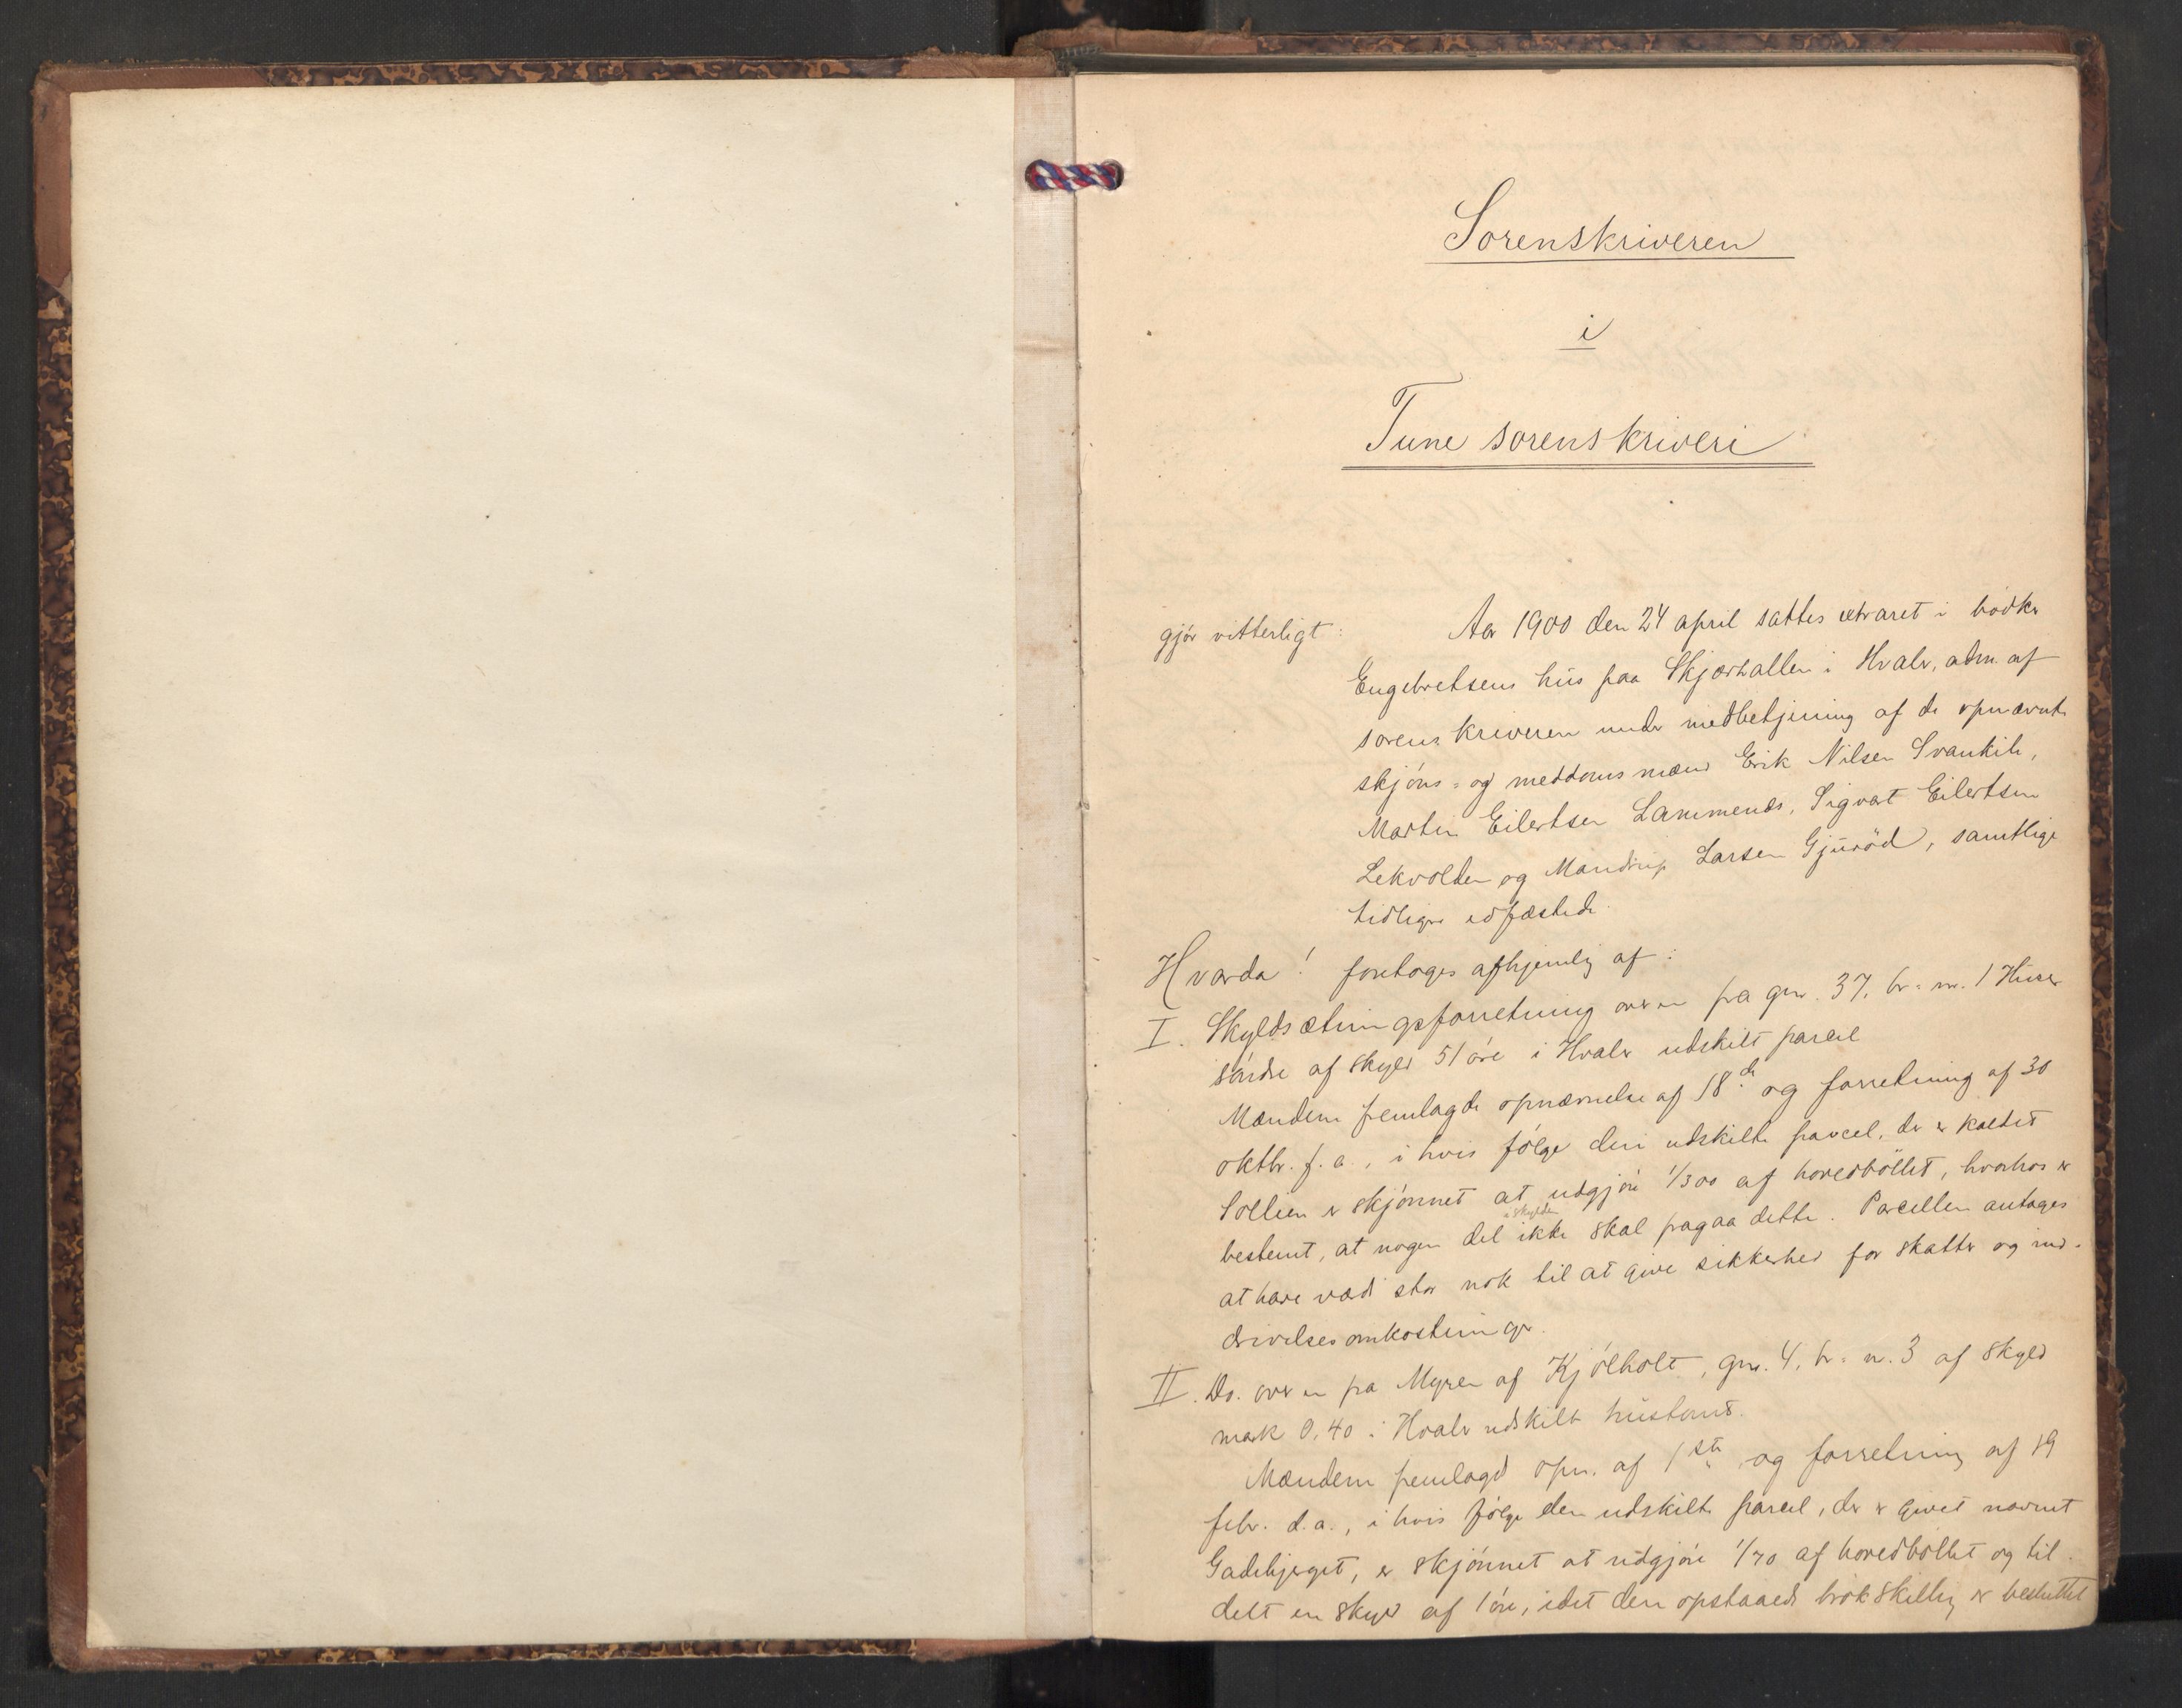 Sorenskriveren
i
Tune sorenskriveri
gjør vitterligt: Aar 1900 den 24 april sattes extraret i bødker
Engebretsens hus paa Skjærhallen i Hvaler, adm. af
sorenskriveren under medbetjening af de opnævnte
skjøns- og meddomsmænd Erik Nilsen Svankile,
Martin Eilertsen Lammenes, Sigvart Eilertsen
Lekvolden og Mandrup Larsen Gjurød, samtlige
tidligere edfæstede.
Hvorda! foretoges afhjemling af:
I. Skyldsætningsforretning over en fra gnr. 37, br.-nr. 1 Huser
søndre af skyld 51 øre i Hvaler udskilt parcel
Mændene fremlagde opnævnelse af 18de og forretning af 30
oktbr. f. a., i hvis følge den udskilte parcel, der er kaldet
Solleien er skjønnet at udgjøre 1/300 af hovedbøllet, hvorhos er
bestemt, at nogen del a skylden ikke skal fragaa dette. Parcellen antages
at have værdi stor nok til at give sikkerhed for skatter og ind-
drivelsesomkostninger.
II. Do. over en fra Myren af Kjølholt, gnr. 4, br.-nr. 3 af skyld
mark 0,40 i Hvaler udskilt hustomt.
Mændene fremlagde opn. af 1ste og forretning af 19
febr. d.a., i hvis følge den udskilte parcel, der er givet navnet
er skjønnet at udgjøre 1/70 af hovedbøllet og til-
delt en skyld af 1 øre, idet den opstaaede brøkskilling er besluttet